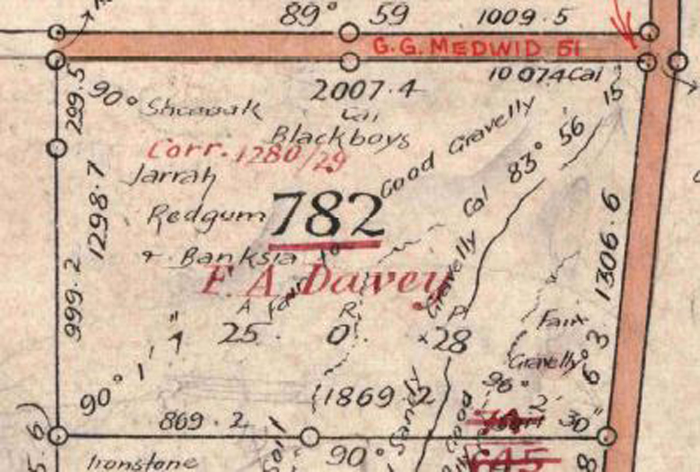 89° 59
1009.5
G.G. MEDWID 51
10074 Cal
2007.4
Cal
299.5
90° Sheaoak
Blackboys
Corr. 1280/29
Jarrah
Good Gravelly
Cal 83° 56 15"
Redgum
782
& Banksia
1298.7
999.2
1306.6
F. A. Davey
Fair to
Gravelly
A R P
25 0 28
Fair
Gravelly
90° 1' 1"
1869.2
96° 2' 30"
6°3
869.2
Sandy
Good
5.6)
Ironstone
Soil
90°
645
8